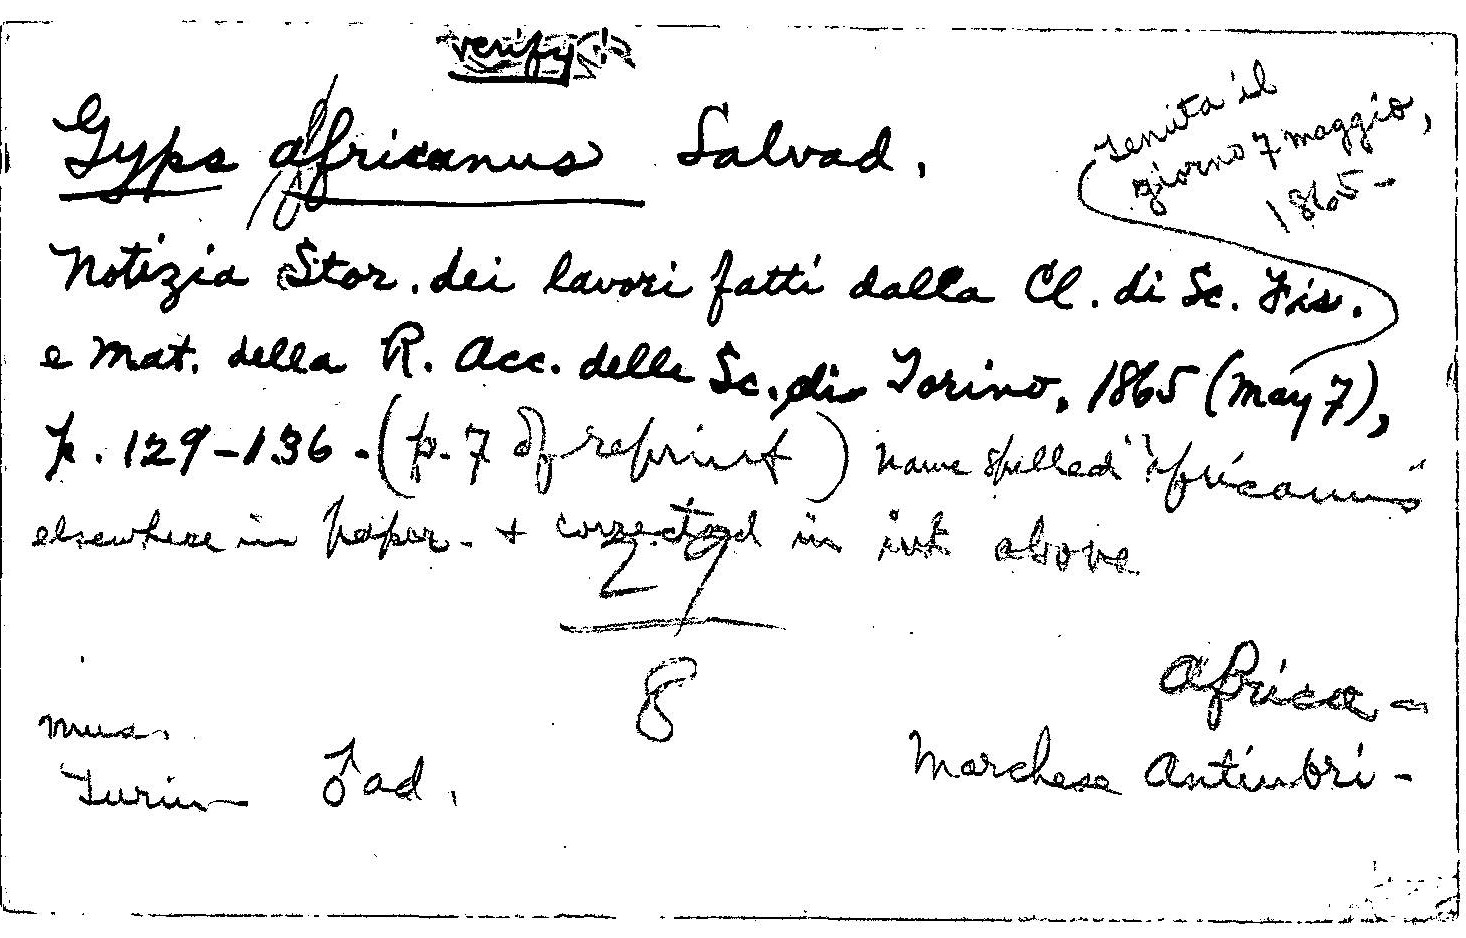 verify
Gyps africanus Salvad.
Tenuta il
giorno 7 maggio,
1865 -
Notizia Stor. dei lavori fatti dalla Cl. di Sc. Fis.
e Mat. della R. Acc. delle Sc. di Torino, 1865 (May 7),
p. 129-136. (p. 7 of reprint) name spelled "africanus"
elsewhere in paper - + corrected in ink above
29
8
Africa -
Mus.
Turin ♂ ad.
Marchese Antinori -